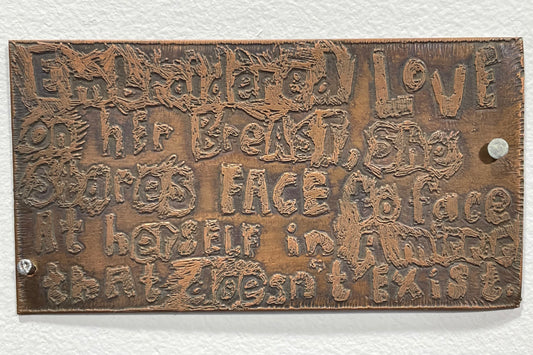 Embroidered LOVE
on hEr BreAST, She
StarEs FACE to face
At hersELF in A mirror
thAt doesn't ExiSt.